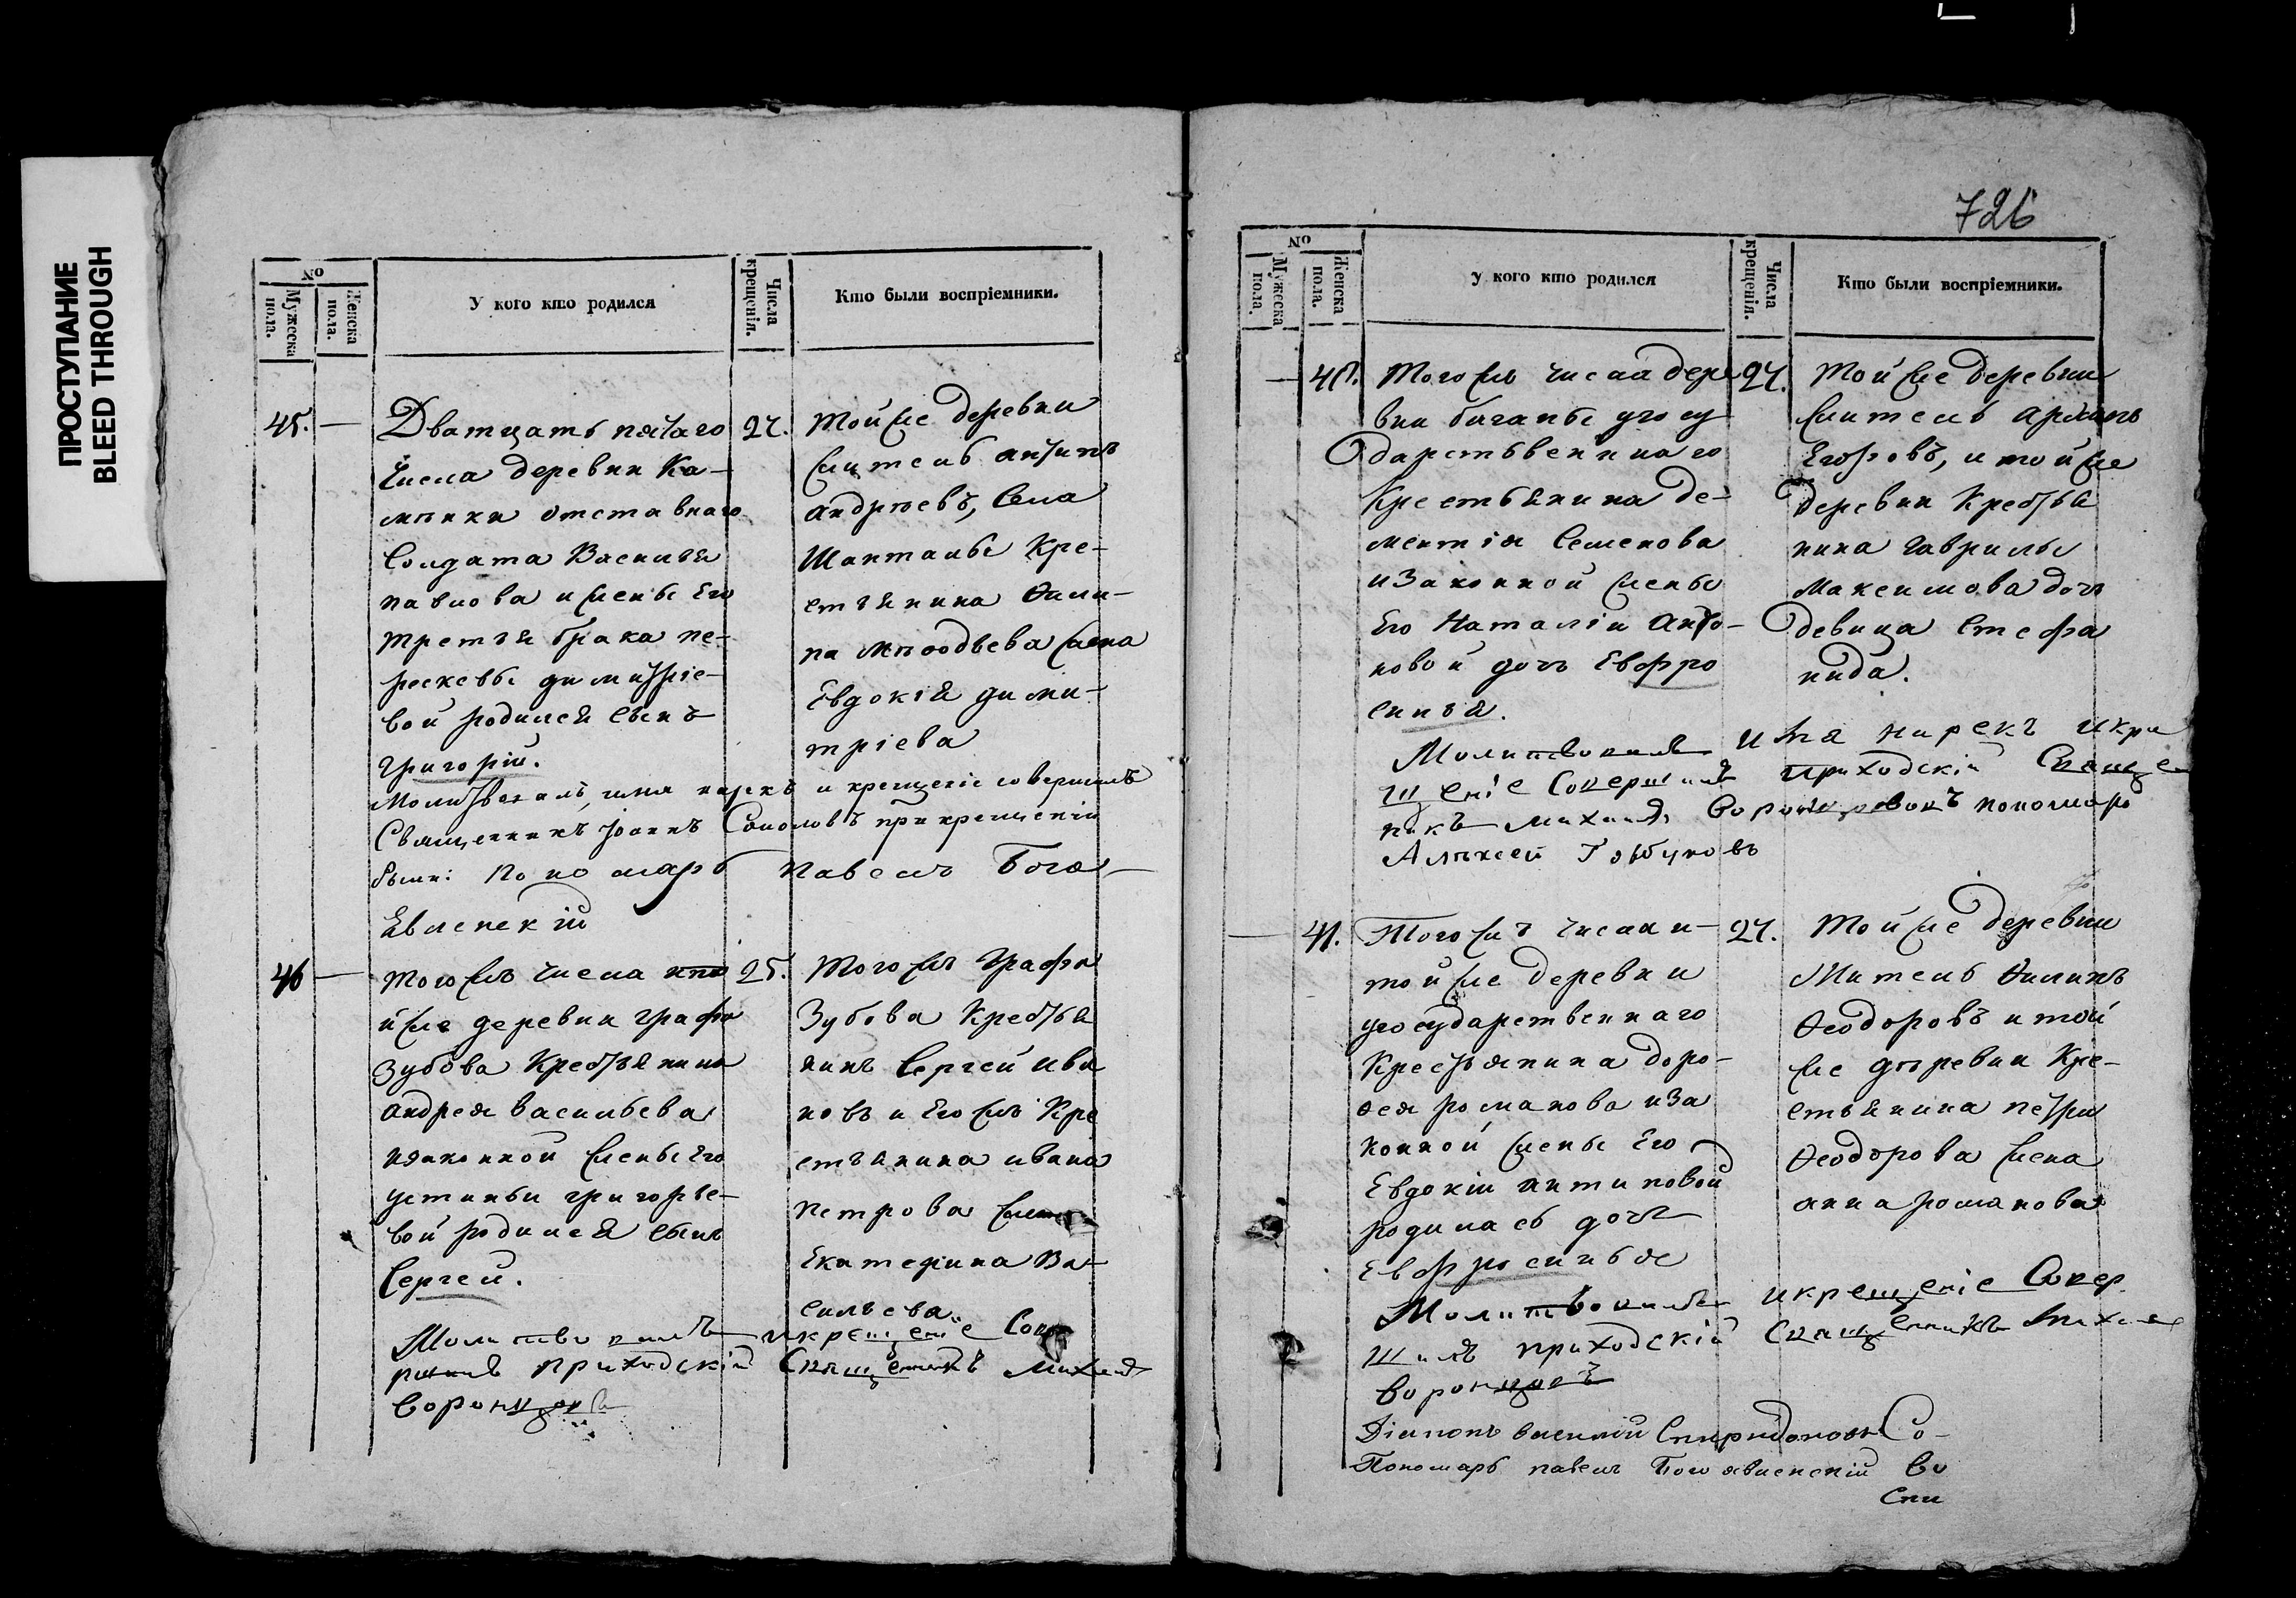 ПРОСТУПАНИЕ
BLEED THROUGH
№
Мужеска пола.
Женска пола.
У кого кто родился
Числа крещенія.
Кто были воспріемники.
45. —
Дватцать пятаго
числа деревни Ка-
мѣнки отставнаго
Солдата Василья
павлова и жены Его
третья брака пе-
расковьи димитріе-
вой родился сынъ
григорій.
27.
той же деревни
житель антипъ
андрѣевъ, села
Шантаны Кре-
стьянина Фили-
па жена
Евдокія дими-
тріева
Молитвовалъ, имя нарекъ и крещеніе совершилъ
Священникъ Іоаннъ Соколовъ при крещеніи
были: Пономарь павелъ Бого-
явленскій
46 —
того жъ числа
й же деревни графа
Зубова Крестьянина
андрея васильева
изаконной жены Его
устиньи григорье-
вой родился сынъ
Сергей.
25.
того жъ графа
Зубова Крестья
нинъ Сергей ива
новъ и Его жъ Кре
стьянина ивана
петрова жена
Екатерина Ва-
сильева
Молитвовалъ и крещеніе Сове
ршилъ приходскій Священникъ Михаилъ
Воронцовъ
726
№
Мужеска пола.
Женска пола.
У кого кто родился
Числа крещенія.
Кто были воспріемники.
— 40.
Того жъ числа дере
вни у госу
дарственнаго
Крестьянина де-
ментія Семенова
изаконной жены
Его Наталіи Анто-
новой дочь Евфро
синья.
27.
Той же деревни
житель архипъ
Егоровъ, и той же
деревни Крестья
нина гаврилы
Максимова дочь
девица Стефа
нида.
Молитвовалъ имя нарекъ и кре
щеніе Совершилъ приходскій Священ
никъ Михаилъ Воронцовъ пономарь
Алѣксей
— 41.
Того жъ числа и
той же деревни
у государственнаго
Крестьянина доро-
фея романова иза
конной жены Его
Евдокіи антиповой
родилась дочь
Евфросинья
27.
Той же деревни
житель Филипъ
Феодоровъ и той
же деревни Кре-
стьянина петра
Феодорова жена
анна романова
Молитвовалъ и крещеніе Совер
шилъ приходскій Священникъ Михаилъ
Воронцовъ
Діаконъ василій Спиридоновъ Со-
Пономарь павелъ Богоявленскій Во
Спи